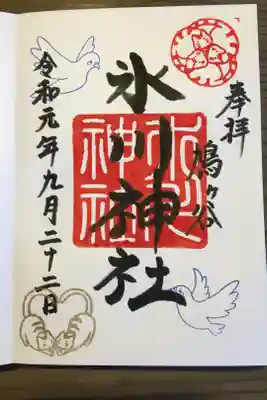 奉拝
鳩ヶ谷
氷川神社
氷川
神社
令和元年九月二十二日